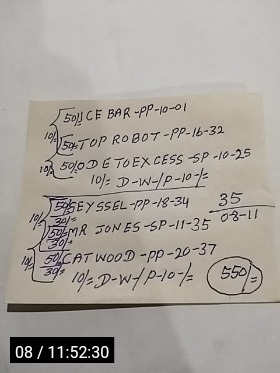 50/ ICE BAR-PP-10-01
10/ 50/= TOP ROBOT-PP-16-32
10/ 50/ ODETOEXCESS-SP-10-25
10/= D-W-/P-10-/=
50/= SEYSSEL-PP-18-34 35
10/ 30/= 08-11
50/= MR JONES-SP-11-35
30/=
10/ 50/ CATWOOD-PP-20-37
30/= 10/= D-W-/P-10-/= 550/=
08 / 11:52:30